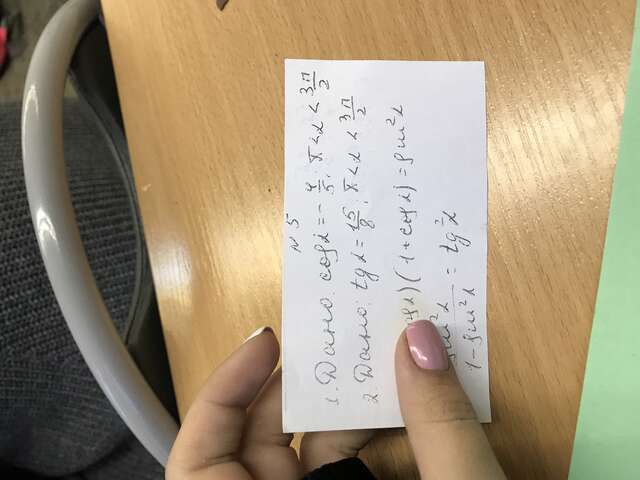 № 5
1. Дано: cosα = - 4/5; π < α < 3π/2
2. Дано: tgα = 15/8; π < α < 3π/2
cosα)(1 + cosα) = sin²α
sin²α / 1 - sin²α = tg²α